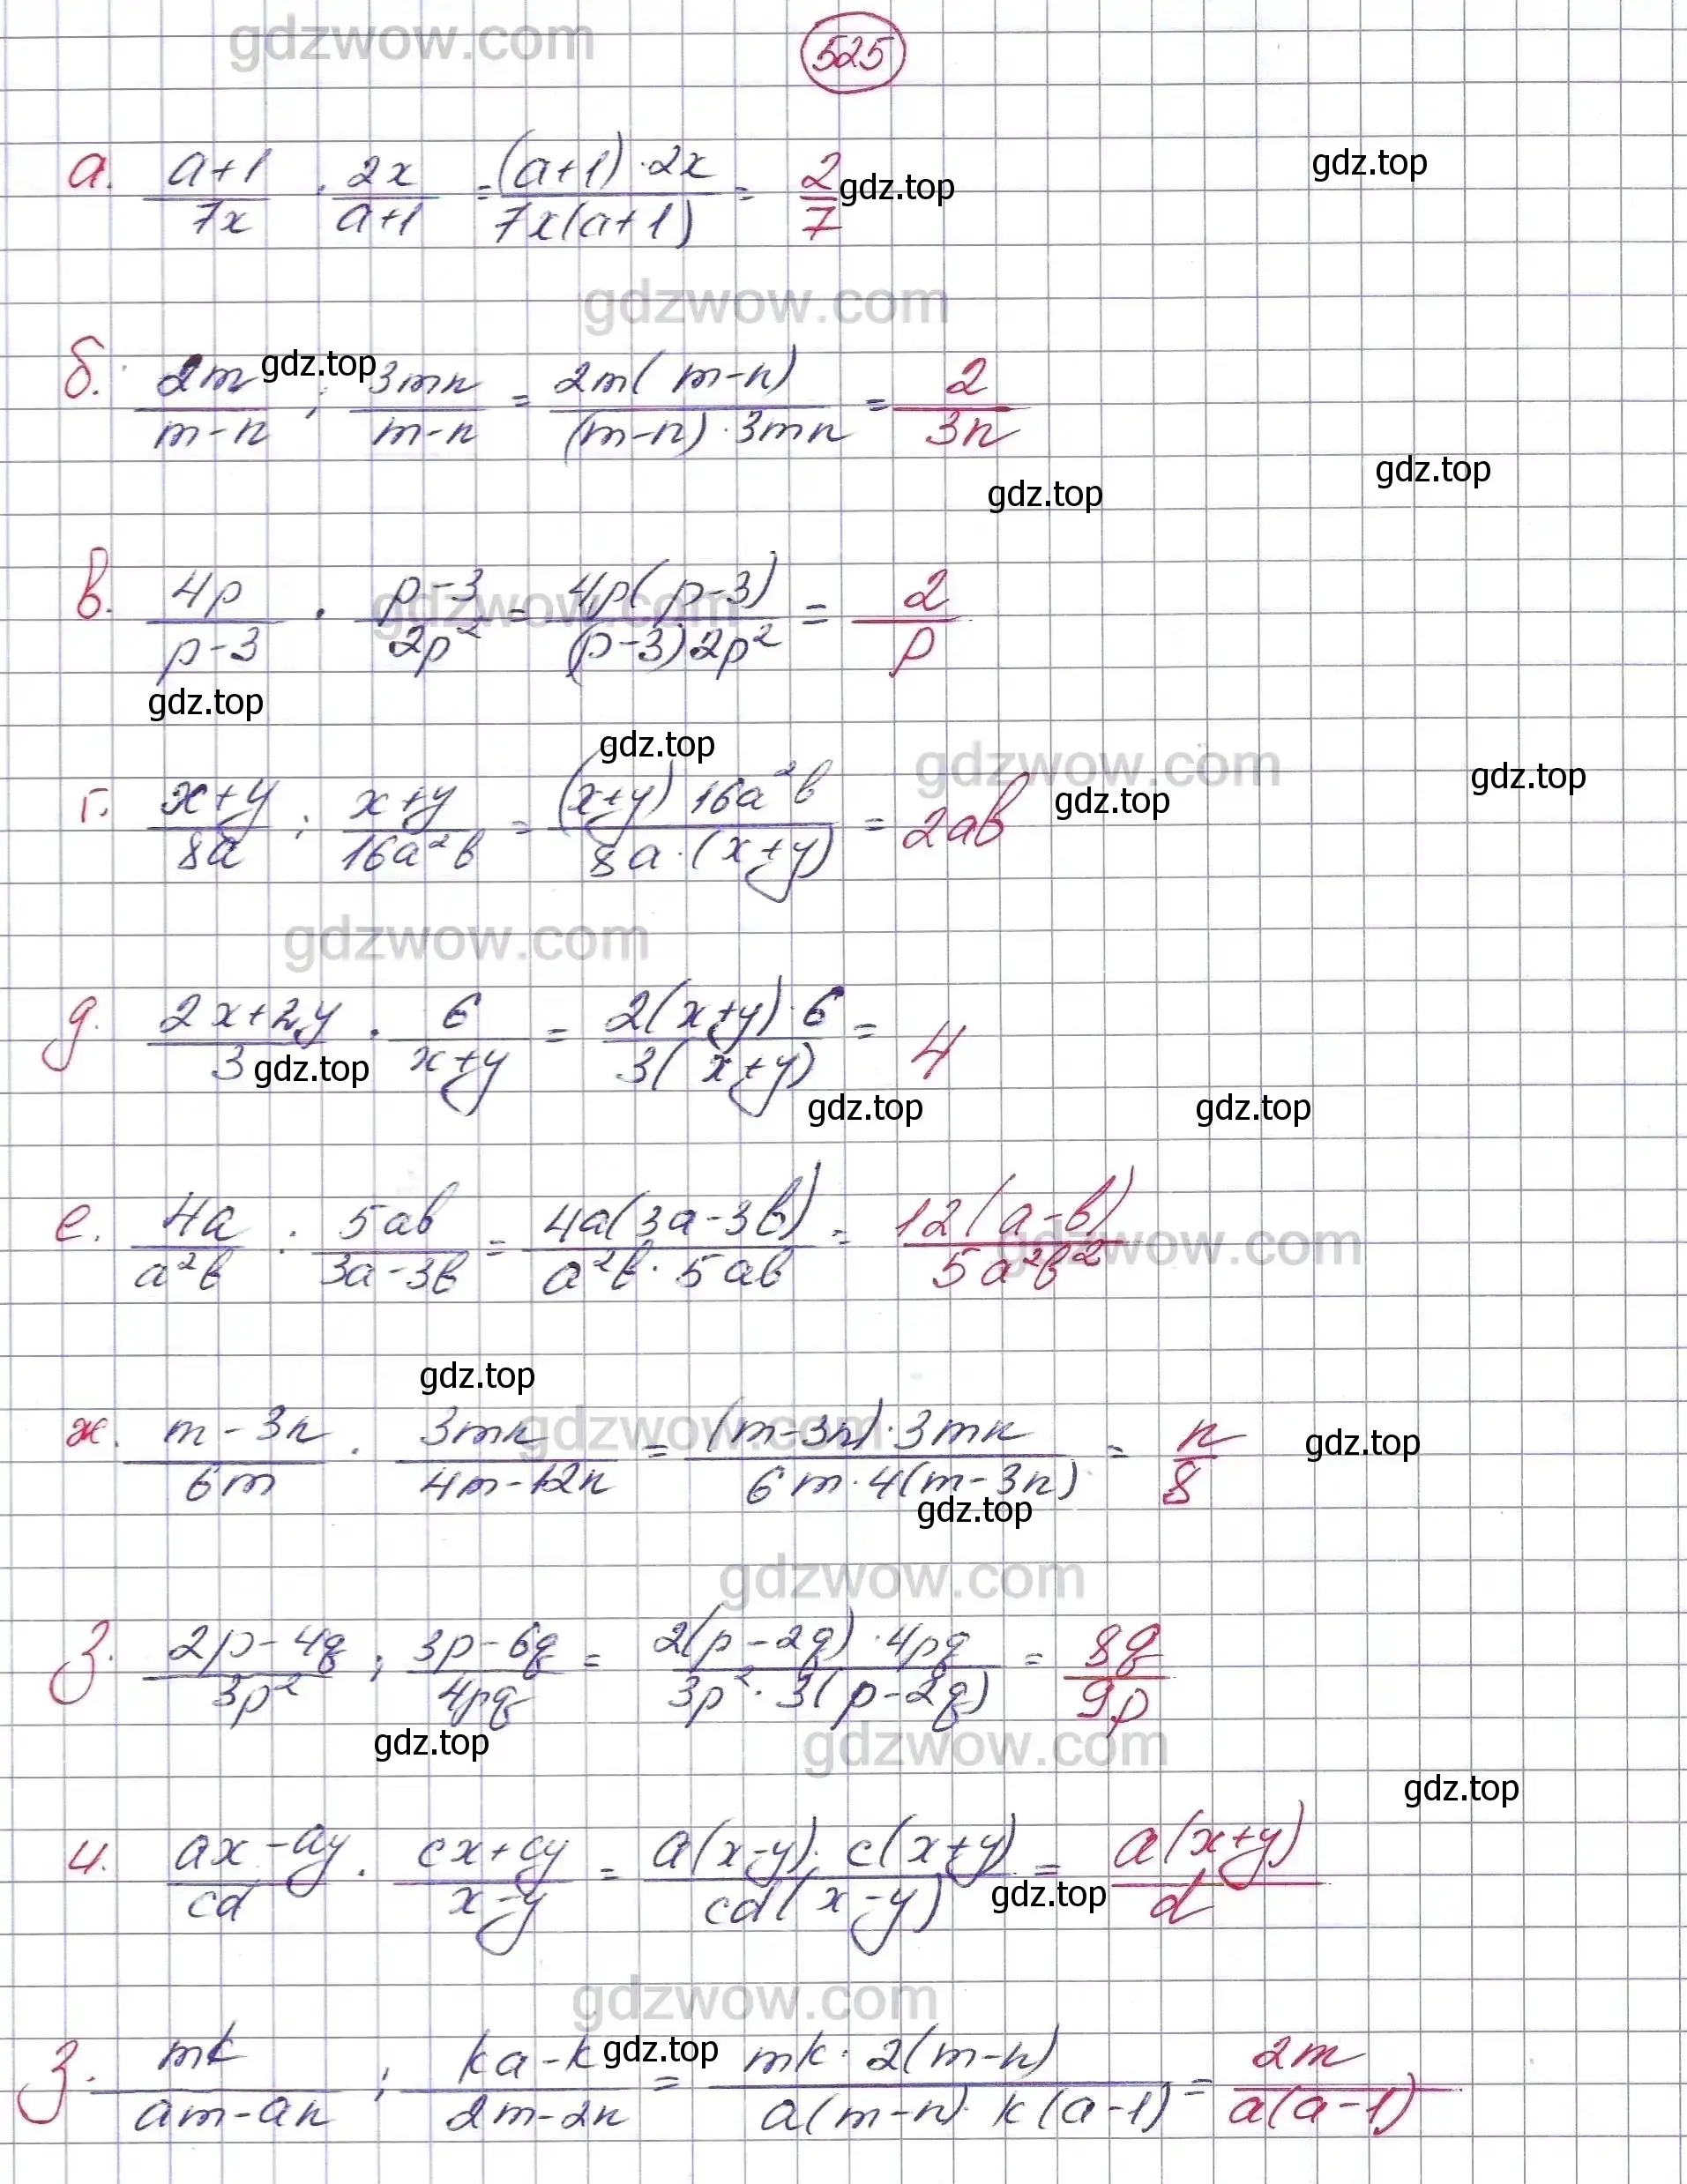 gdzwow.com 525
gdz.top
а. (a+1)/(7x) · (2x)/(a+1) = ((a+1)·2x)/(7x(a+1)) = 2/7 gdz.top
gdzwow.com
б. (2m)/(m-n) : (3mn)/(m-n) = (2m(m-n))/((m-n)·3mn) = 2/(3n)
gdz.top
gdz.top
gdz.top
в. (4p)/(p-3) · (p-3)/(2p²) = (4p(p-3))/((p-3)2p²) = 2/p
gdzwow.com
gdz.top
gdz.top
gdzwow.com
gdz.top
г. (x+y)/(8a) : (x+y)/(16a²b) = ((x+y)16a²b)/(8a·(x+y)) = 2ab gdz.top
gdzwow.com
д. (2x+2y)/3 · 6/(x+y) = (2(x+y)·6)/(3(x+y)) = 4
gdz.top
gdz.top gdz.top
е. (4a)/(a²b) : (5ab)/(3a-3b) = (4a(3a-3b))/(a²b·5ab) = (12(a-b))/(5a²b²)
gdzwow.com
gdz.top
gdzwow.com
ж. (m-3n)/(6m) · (3mn)/(4m-12n) = ((m-3n)·3mn)/(6m·4(m-3n)) = n/8 gdz.top
gdz.top
gdzwow.com
з. (2p-4q)/(3p²) : (3p-6q)/(4pq) = (2(p-2q)·4pq)/(3p²·3(p-2q)) = (8q)/(9p)
gdz.top
gdzwow.com
gdz.top
и. (ax-ay)/(cd) · (cx+cy)/(x-y) = (a(x-y)·c(x+y))/(cd(x-y)) = (a(x+y))/d
gdz.top
gdzwow.com
gdz.top
з. (mk)/(am-an) : (ka-k)/(2m-2n) = (mk·2(m-n))/(a(m-n)·k(a-1)) = (2m)/(a(a-1))